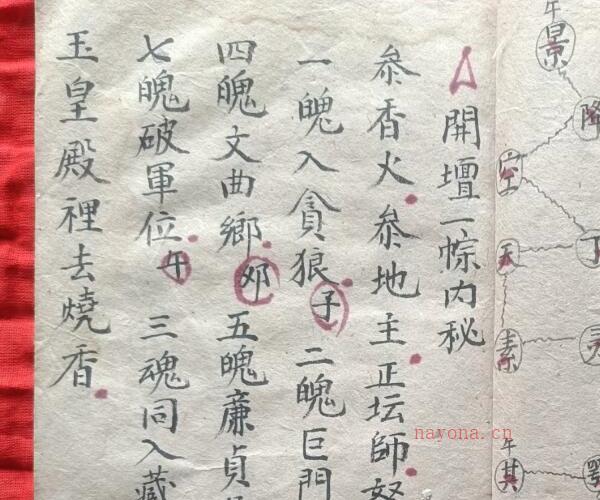 午
景
降
空
天
丁
素
午
其
開壇一宗内秘
叅香火叅地主正坛師
一魄入貪狼子二魄巨門
四魄文曲鄉卯五魄廉貞
七魄破軍位午三魂同入藏
玉皇殿裡去燒香
nayona.cn